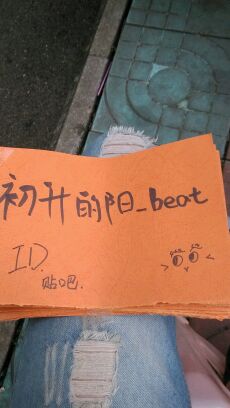 初升的阳_beat
ID.
贴吧.